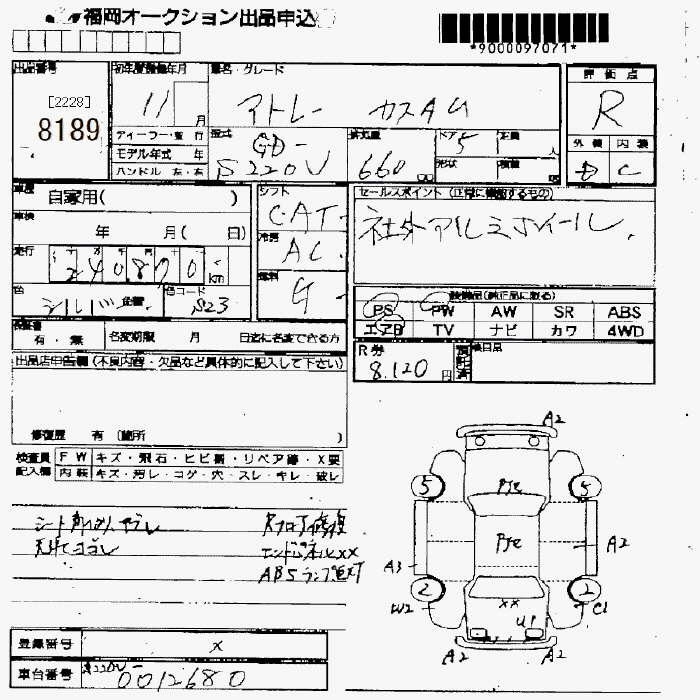 福岡オークション出品申込
*9000097071*
出品番号
[2228]
8189
初年度登録年月
11 月
車名・グレード
アトレー カスタム
評価点
R
外装 内装
D C
ディーラー・並行
モデル年式 年
ハンドル 右・左
型式
GD-
S220V
排気量
660 cc
ドア
5
定員
人
形状
積量
車歴
自家用( )
車検
年 月( 日)
走行
240870 km
色
シルバー 色替
色コード
S23
シフト
CAT
冷房
AC
燃料
G
セールスポイント (正常に機能するもの)
社外アルミホイール
装備品(純正品に限る)
PS PW AW SR ABS
エアB TV ナビ カワ 4WD
保証書
有・無
名変期限 月 日迄に名変できる方
R券
8,120 円
預託済
後日品
出品店申告欄 (不良内容・欠品など具体的に記入して下さい)
修復歴 有 (箇所 )
検査員 FW キズ・飛石・ヒビ割・リペア跡・X要
記入欄 内装 キズ・汚レ・コゲ・穴・スレ・キレ・破レ
天井ヨゴレ
エンドパネルXX
ABSランプ点灯
A2
5
5
A3
A2
2
2
W2
XX
C1
U1
A2
A2
登録番号 X
車台番号 S220V-0012680